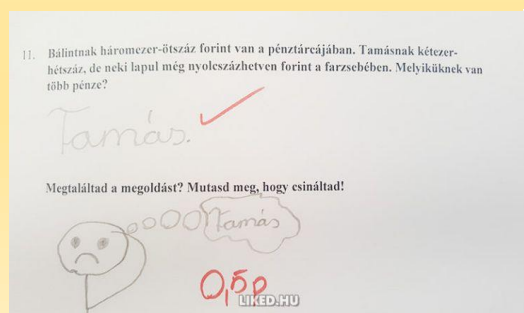 11. Bálintnak háromezer-ötszáz forint van a pénztárcájában. Tamásnak kétezer-
hétszáz, de neki lapul még nyolcszázhetven forint a farzsebében. Melyiküknek van
több pénze?
Tamás.
Megtaláltad a megoldást? Mutasd meg, hogy csináltad!
Tamás
0,5p
LIKED.HU